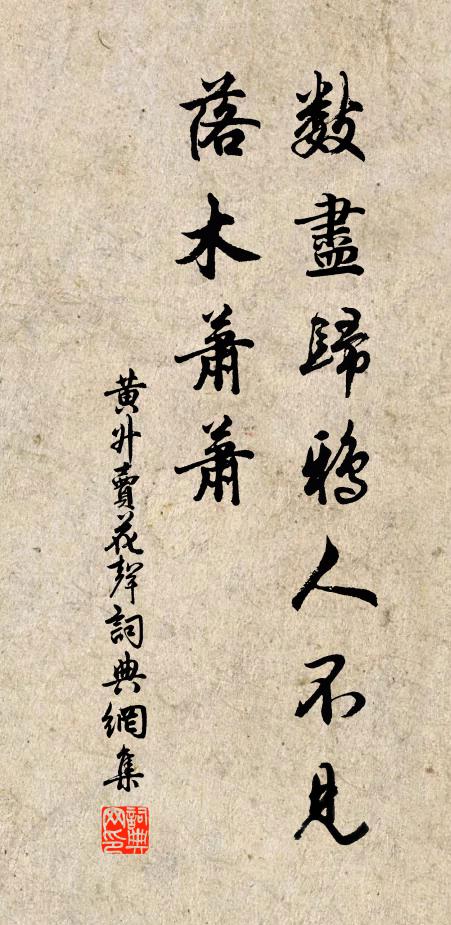 數盡歸鴉人不見
落木蕭蕭
黄升賣花聲詞典網集
詞典網印